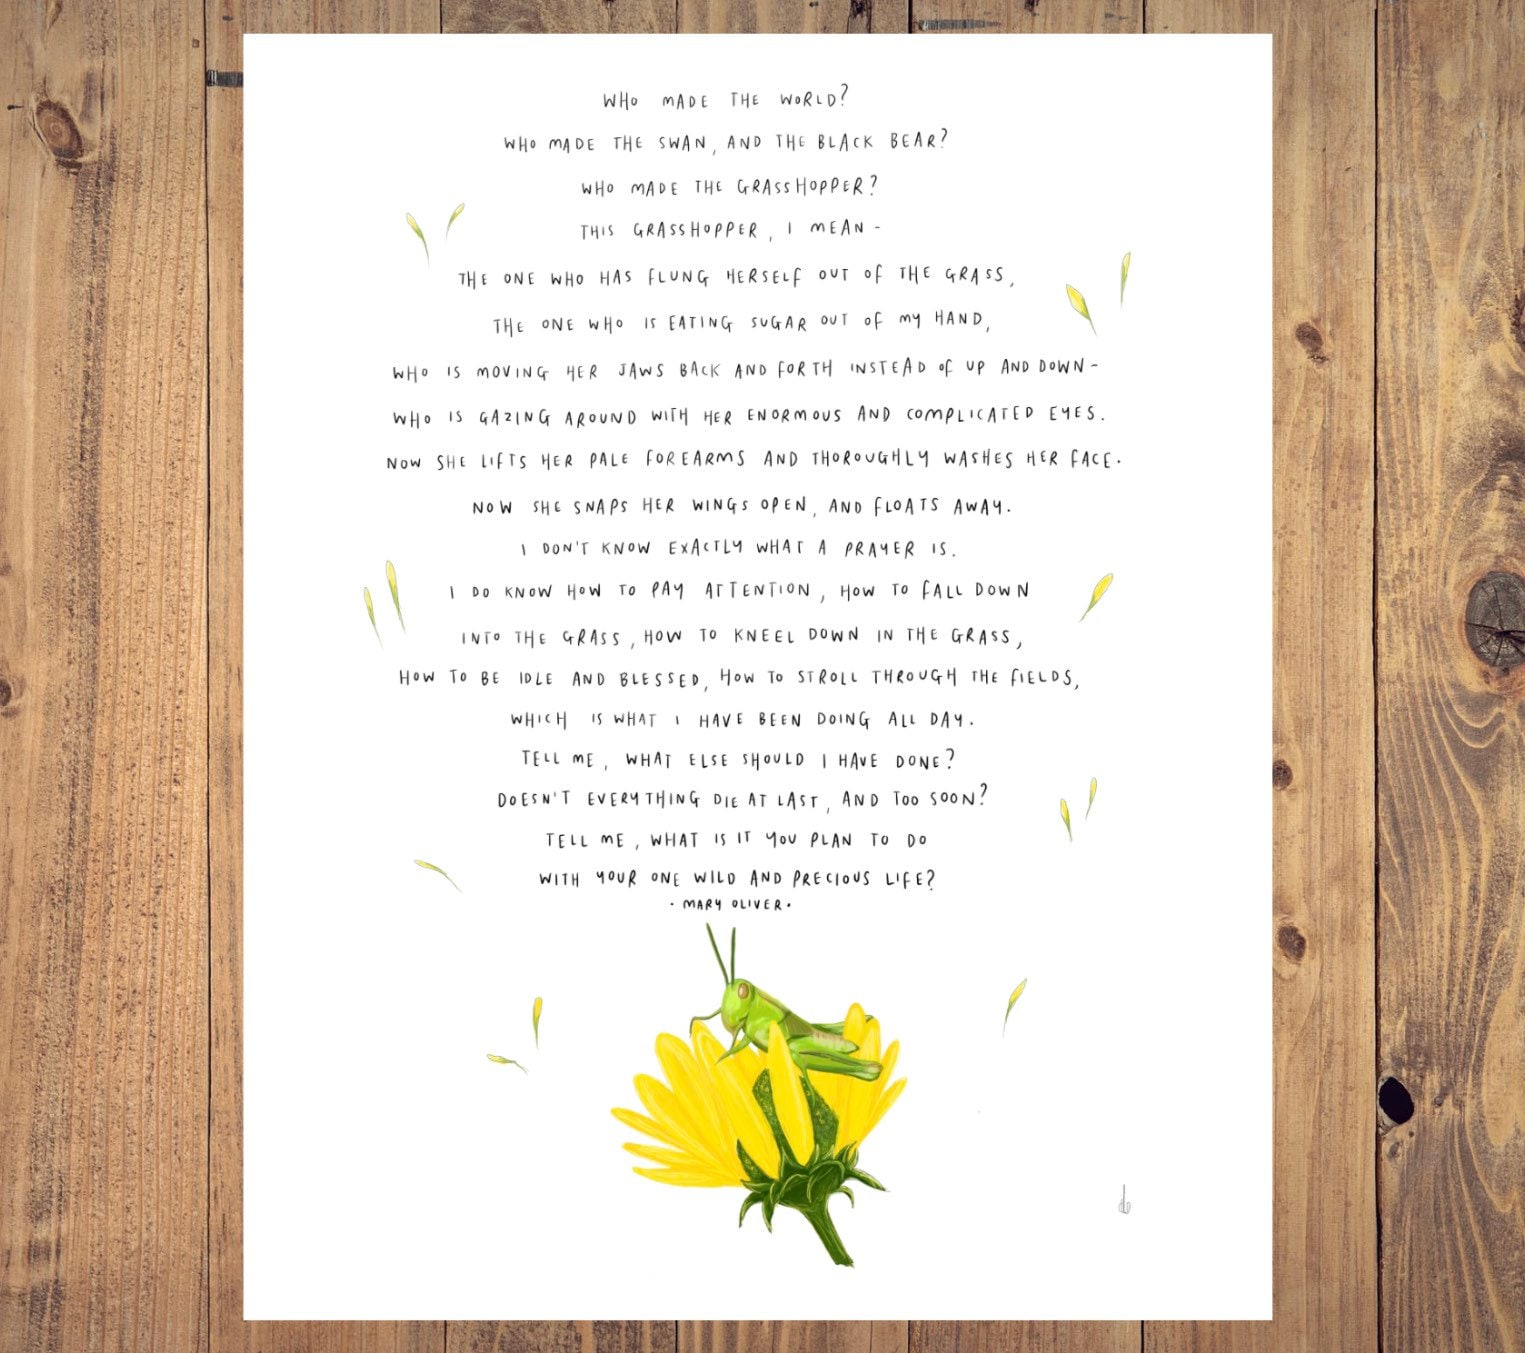 WHO MADE THE WORLD?
WHO MADE THE SWAN, AND THE BLACK BEAR?
WHO MADE THE GRASSHOPPER?
THIS GRASSHOPPER, I MEAN -
THE ONE WHO HAS FLUNG HERSELF OUT OF THE GRASS,
THE ONE WHO IS EATING SUGAR OUT OF MY HAND,
WHO IS MOVING HER JAWS BACK AND FORTH INSTEAD OF UP AND DOWN -
WHO IS GAZING AROUND WITH HER ENORMOUS AND COMPLICATED EYES.
NOW SHE LIFTS HER PALE FOREARMS AND THOROUGHLY WASHES HER FACE.
NOW SHE SNAPS HER WINGS OPEN, AND FLOATS AWAY.
I DON'T KNOW EXACTLY WHAT A PRAYER IS.
I DO KNOW HOW TO PAY ATTENTION, HOW TO FALL DOWN
INTO THE GRASS, HOW TO KNEEL DOWN IN THE GRASS,
HOW TO BE IDLE AND BLESSED, HOW TO STROLL THROUGH THE FIELDS,
WHICH IS WHAT I HAVE BEEN DOING ALL DAY.
TELL ME, WHAT ELSE SHOULD I HAVE DONE?
DOESN'T EVERYTHING DIE AT LAST, AND TOO SOON?
TELL ME, WHAT IS IT YOU PLAN TO DO
WITH YOUR ONE WILD AND PRECIOUS LIFE?
· MARY OLIVER ·